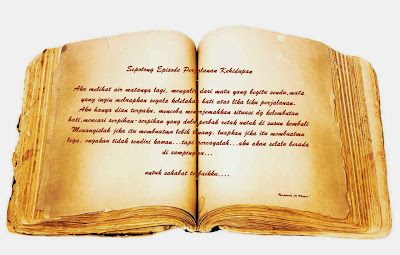 Sepotong Episode Perjalanan Kehidupan
Aku melihat air matanya lagi, mengalir dari mata yang begitu sendu,mata
yang ingin meluapkan segala kelelahan hati atas liku liku perjalanan.
Aku hanya diam terpaku, mencoba menerjemahkan situasi dg kelembutan
hati,mencari serpihan-serpihan yang dulu pernah retak untuk di susun kembali
Menangislah jika itu membuatmu lebih tenang, luapkan jika itu membuatmu
lega, engakau tidak sendiri kawan...tapi percayalah...aku akan selalu berada
di sampingmu...
untuk sahabat terbaikku....